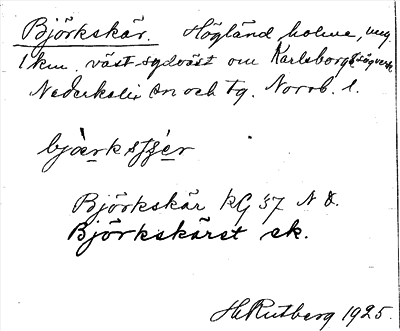 Björkskär. Högländ holme, ung.
1 km. väst-sydväst om Karlsborgs sågverk
Nederkalix sn och tg. Norrb. l.
bjærksʃær
Björkskär KG 37 N Ö.
Björkskäret ek.
H Rutberg 1925.